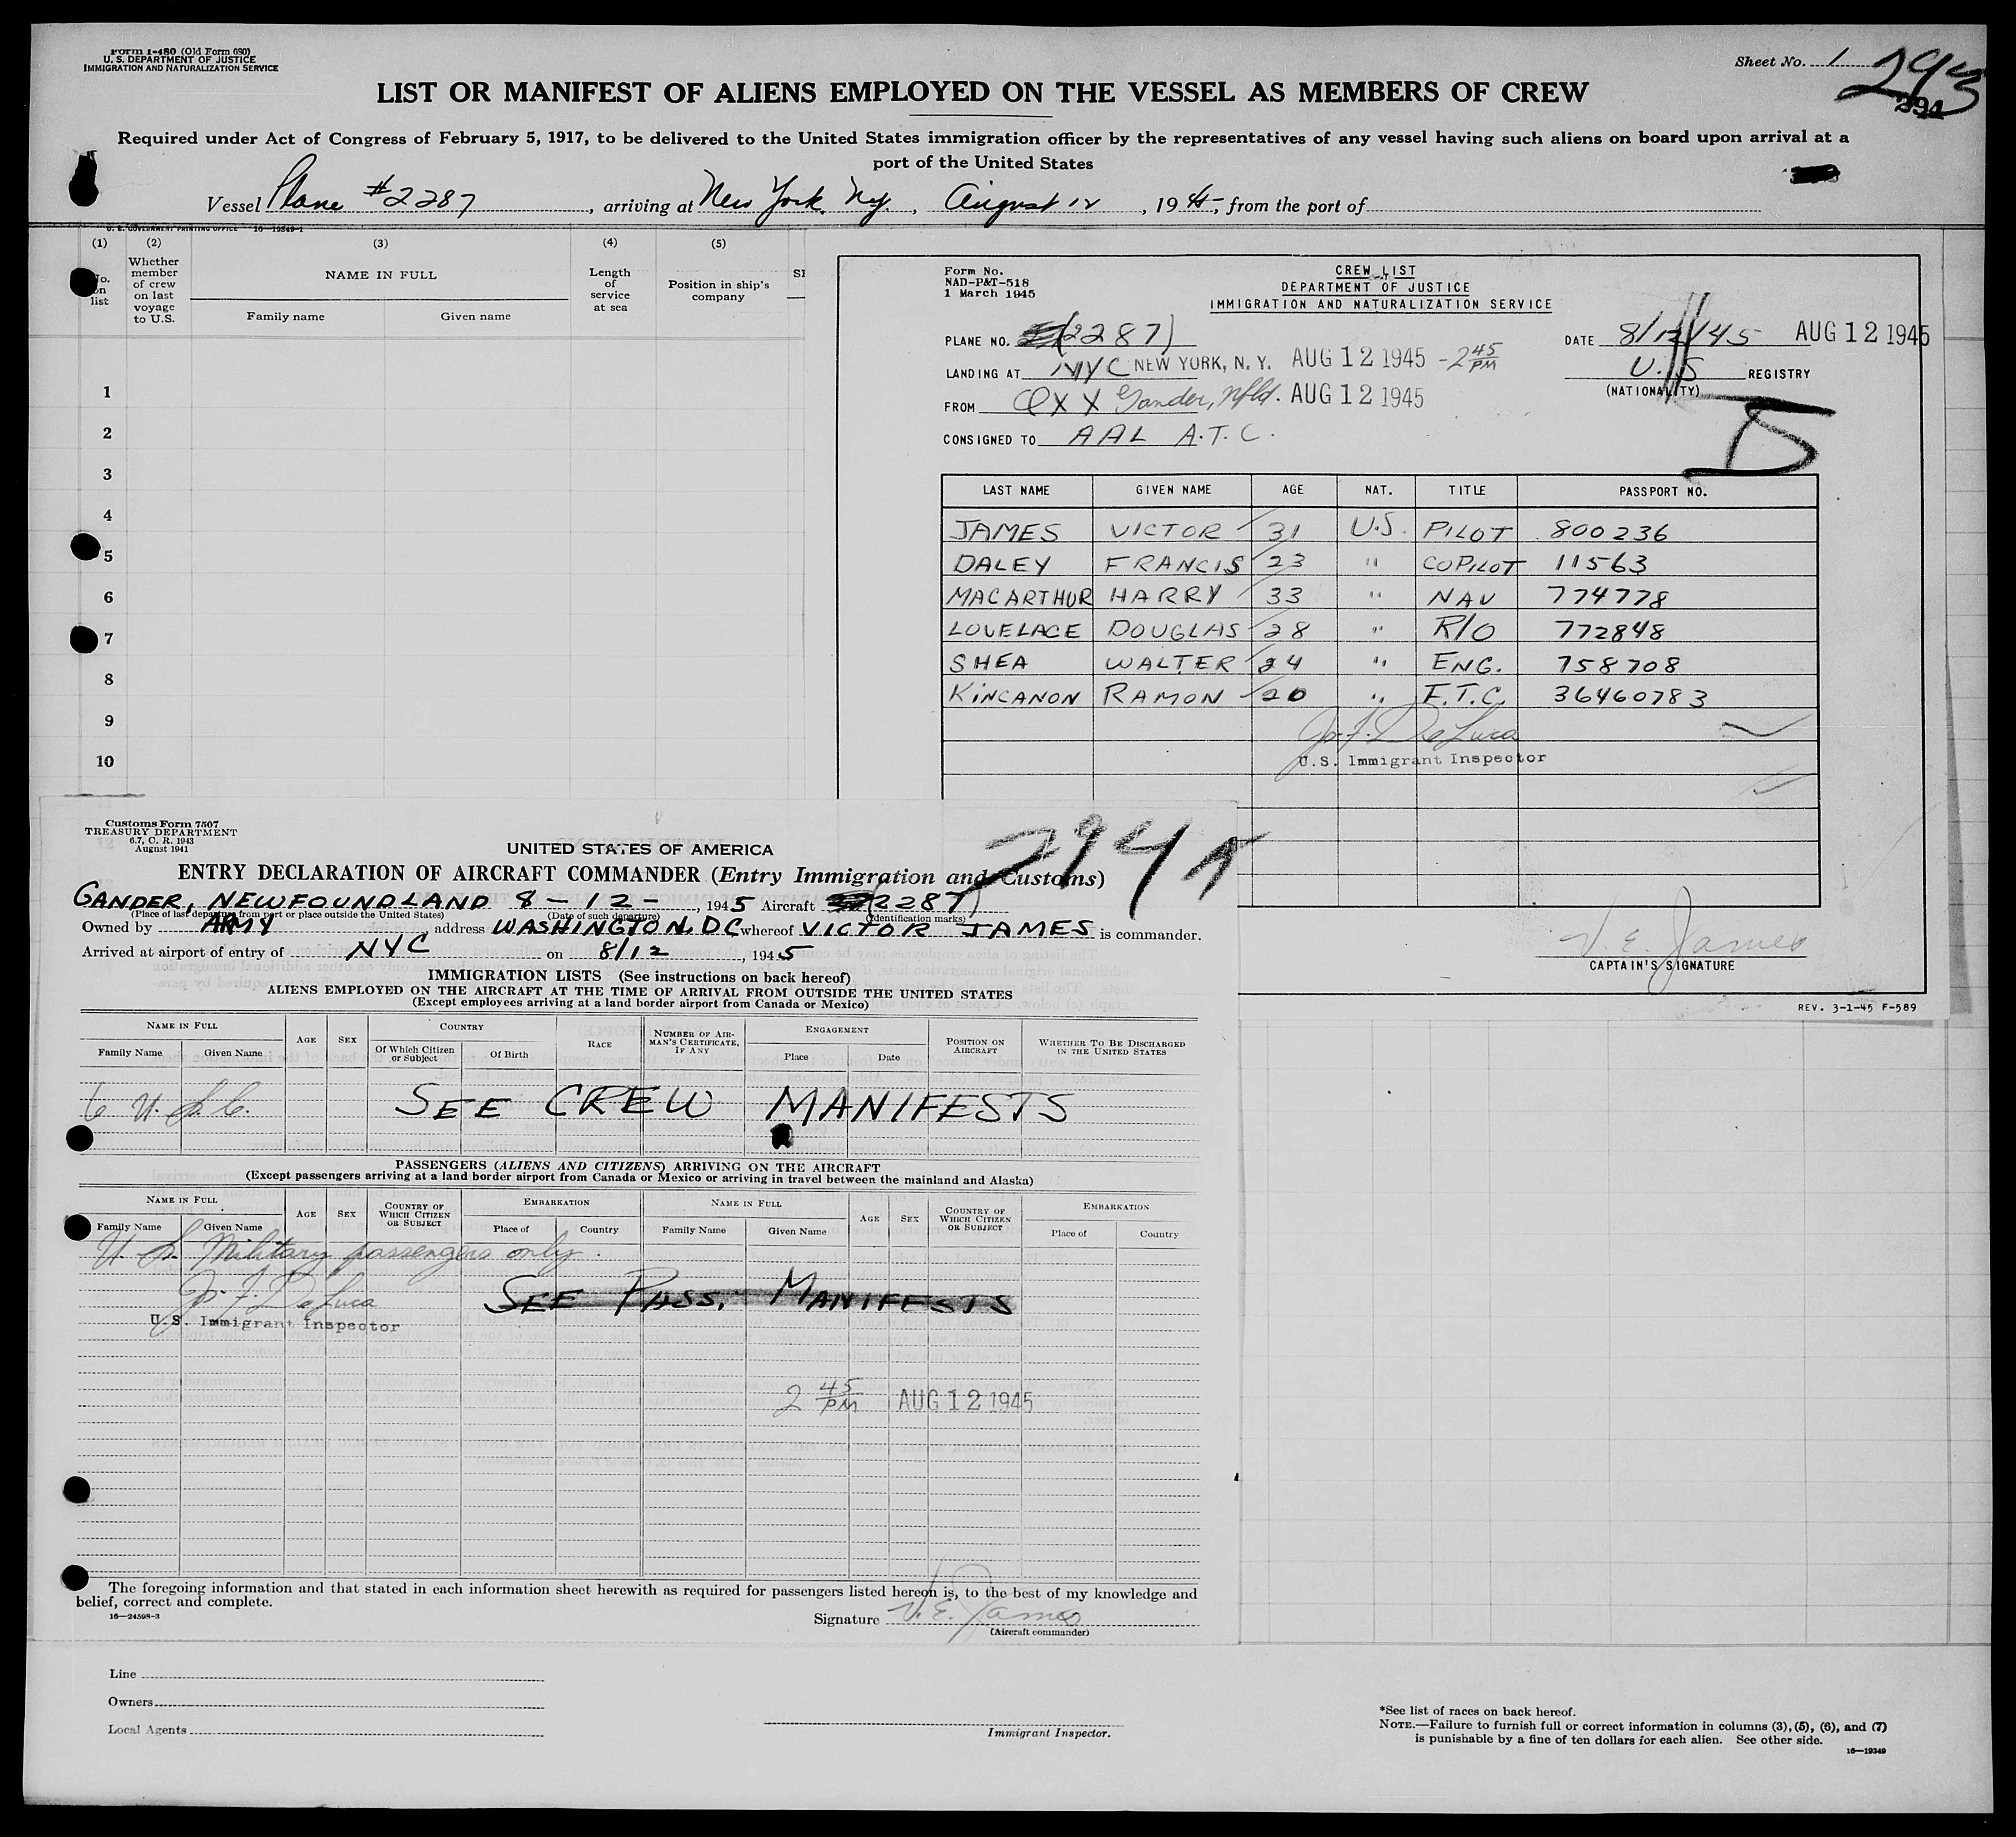 Form I-480 (Old Form 680)
U. S. DEPARTMENT OF JUSTICE
IMMIGRATION AND NATURALIZATION SERVICE
Sheet No. 1
293
294
LIST OR MANIFEST OF ALIENS EMPLOYED ON THE VESSEL AS MEMBERS OF CREW
Required under Act of Congress of February 5, 1917, to be delivered to the United States immigration officer by the representatives of any vessel having such aliens on board upon arrival at a
port of the United States
Vessel Plane #2287, arriving at New York, Ny., August 12, 1945, from the port of
U. S. GOVERNMENT PRINTING OFFICE 16—19349-1
(1) (2) (3) (4) (5)
No. on list
Whether member of crew on last voyage to U.S.
NAME IN FULL
Family name Given name
Length of service at sea
Position in ship's company
1
2
3
4
5
6
7
8
9
10
Form No.
NAD-P&T-518
1 March 1945
CREW LIST
DEPARTMENT OF JUSTICE
IMMIGRATION AND NATURALIZATION SERVICE
PLANE NO. (2287) DATE 8/12/45 AUG 12 1945
LANDING AT NYC NEW YORK, N. Y. AUG 12 1945 - 2 45 PM U.S REGISTRY
(NATIONALITY)
FROM QXX Gander, Nfld. AUG 12 1945
CONSIGNED TO AAL A.T.C.
LAST NAME GIVEN NAME AGE NAT. TITLE PASSPORT NO.
JAMES VICTOR 31 U.S. PILOT 800236
DALEY FRANCIS 23 " COPILOT 11563
MACARTHUR HARRY 33 " NAV 774778
LOVELACE DOUGLAS 28 " R/O 772848
SHEA WALTER 24 " ENG. 758708
KINCANON RAMON 20 " F.T.C. 36460783
Jo. F. DeLuca
U.S. Immigrant Inspector
V. E. James
CAPTAIN'S SIGNATURE
REV. 3-1-45 F-589
Customs Form 7507
TREASURY DEPARTMENT
6.7, C. R. 1943
August 1941
294
UNITED STATES OF AMERICA
ENTRY DECLARATION OF AIRCRAFT COMMANDER (Entry Immigration and Customs)
GANDER, NEWFOUNDLAND 8-12-, 1945 Aircraft (2287)
(Place of last departure from port or place outside the United States) (Date of such departure) (Identification marks)
Owned by ARMY, address WASHINGTON, DC whereof VICTOR JAMES is commander.
Arrived at airport of entry of NYC on 8/12, 1945
IMMIGRATION LISTS (See instructions on back hereof)
ALIENS EMPLOYED ON THE AIRCRAFT AT THE TIME OF ARRIVAL FROM OUTSIDE THE UNITED STATES
(Except employees arriving at a land border airport from Canada or Mexico)
NAME IN FULL AGE SEX COUNTRY RACE NUMBER OF AIRMAN'S CERTIFICATE, IF ANY ENGAGEMENT POSITION ON AIRCRAFT WHETHER TO BE DISCHARGED IN THE UNITED STATES
Family Name Given Name Of Which Citizen or Subject Of Birth Place Date
6 U. S. C. SEE CREW MANIFESTS
PASSENGERS (ALIENS AND CITIZENS) ARRIVING ON THE AIRCRAFT
(Except passengers arriving at a land border airport from Canada or Mexico or arriving in travel between the mainland and Alaska)
NAME IN FULL AGE SEX COUNTRY OF WHICH CITIZEN OR SUBJECT EMBARKATION NAME IN FULL AGE SEX COUNTRY OF WHICH CITIZEN OR SUBJECT EMBARKATION
Family Name Given Name Place of Country Family Name Given Name Place of Country
U. S. Military passengers only.
Jo. F. DeLuca
SEE PASS. MANIFESTS
U.S. Immigrant Inspector
2 45 PM AUG 12 1945
The foregoing information and that stated in each information sheet herewith as required for passengers listed hereon is, to the best of my knowledge and
belief, correct and complete.
16—24598-3
Signature V. E. James
(Aircraft commander)
Line
Owners
Local Agents
Immigrant Inspector.
*See list of races on back hereof.
NOTE.—Failure to furnish full or correct information in columns (3), (5), (6), and (7)
is punishable by a fine of ten dollars for each alien. See other side.
16—19349